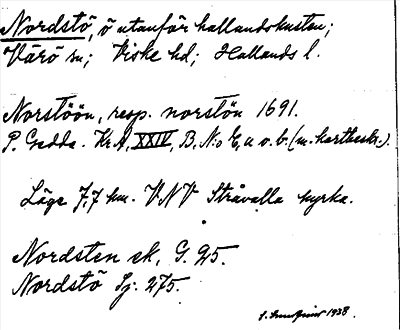 Nordstö, ö utanför hallandskusten;
Värö sn; Viske hd; Hallands l.
Norstöön, resp. norstön 1691.
P. Gedda. KrA, XXIV, B. N:o 6, a o. b. (m. karthuskr.).
Läge 7,7 km. VNV Stråvalla kyrka.
Nordsten sk, G. 25.
Nordstö Sj. 275.
1938.